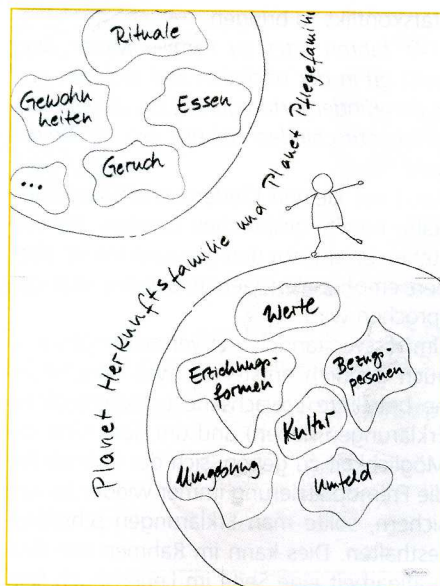 Rituale
Gewohn
heiten
Essen
Geruch
...
Planet Herkunftsfamilie und Planet Pflegefamilie
Werte
Erziehungs-
formen
Bezugs
personen
Kultur
Umgebung
Umfeld